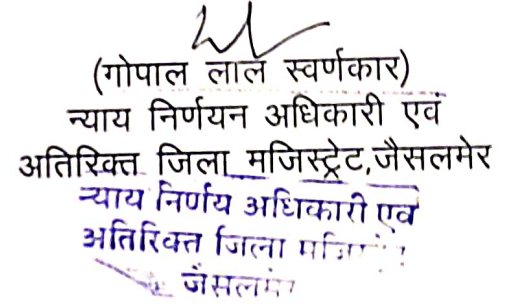 (गोपाल लाल स्वर्णकार)
न्याय निर्णयन अधिकारी एवं
अतिरिक्त जिला मजिस्ट्रेट,जैसलमेर
न्याय निर्णय अधिकारी एवं
अतिरिक्त जिला